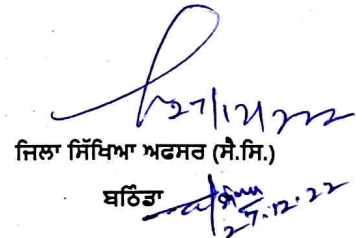 27/12/2022
ਜਿਲਾ ਸਿੱਖਿਆ ਅਫਸਰ (ਸੈ.ਸਿ.)
ਬਠਿੰਡਾ
27.12.22